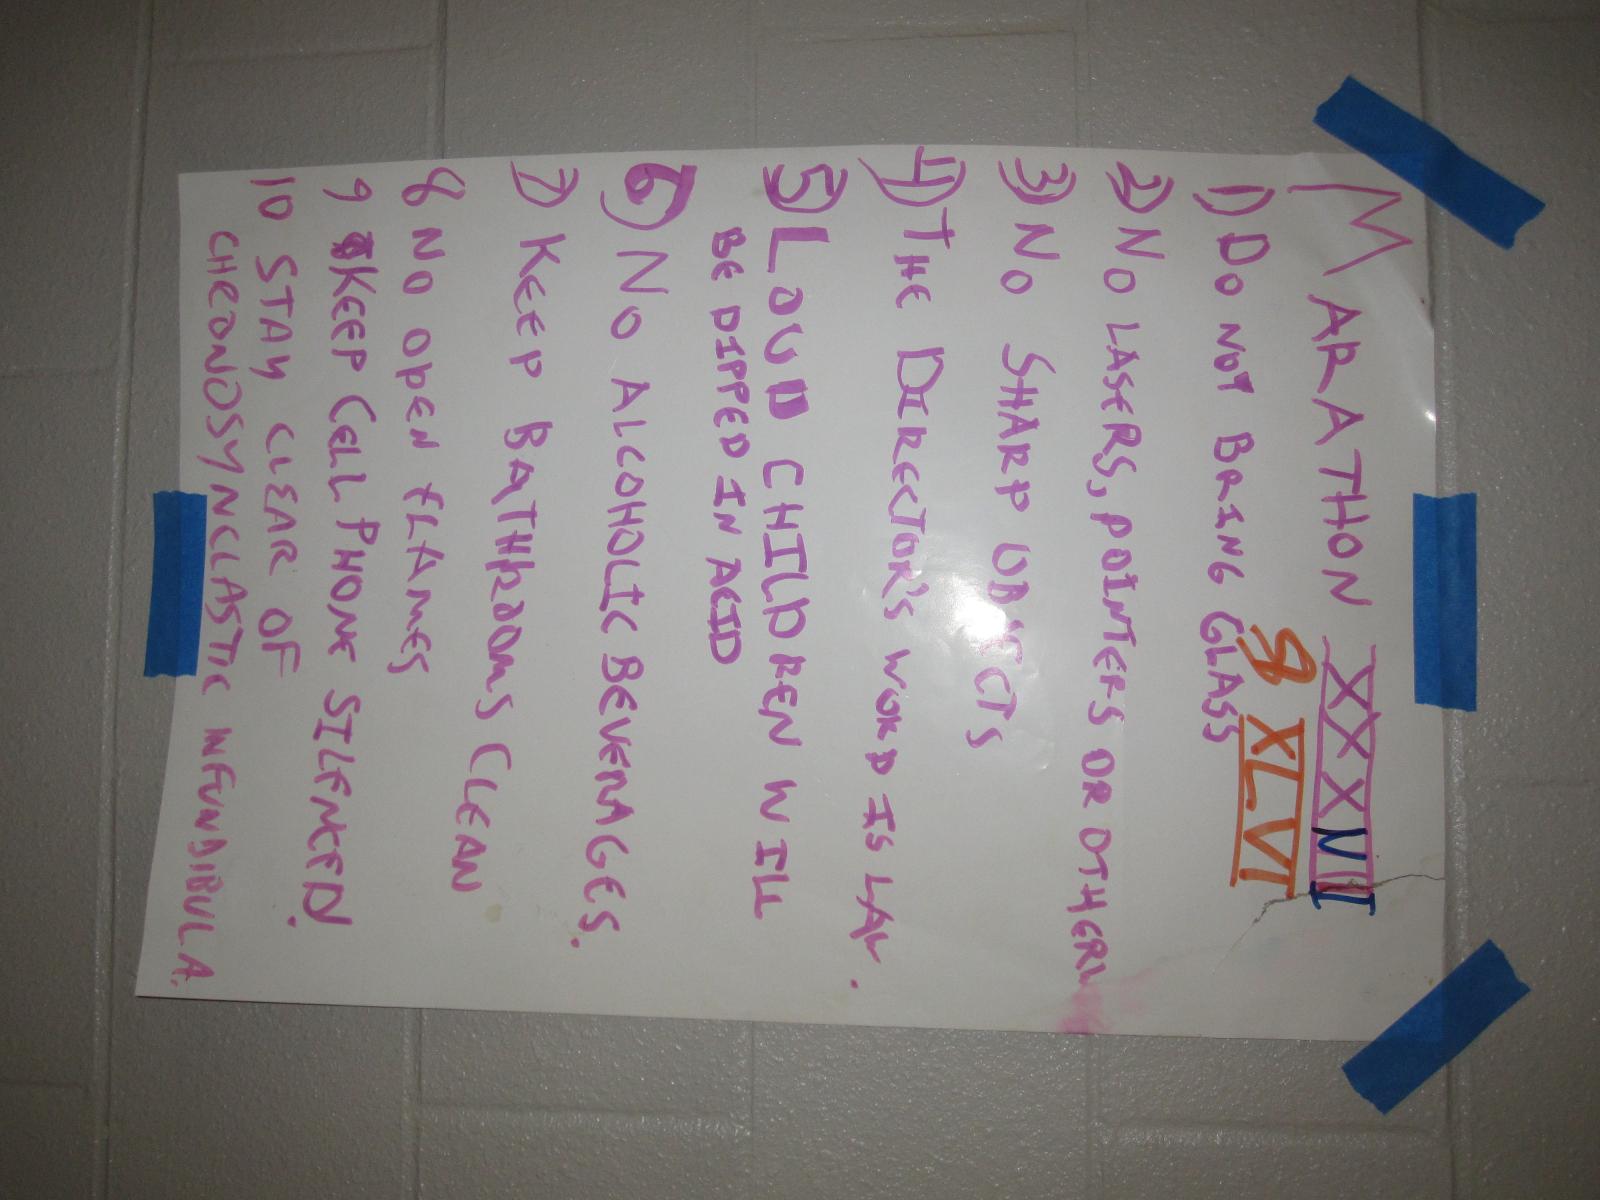 MARATHON XXXVIII
& XLVI
1) DO NOT BRING GLASS
2) NO LASERS, POINTERS OR OTHERW
3) NO SHARP OBJECTS
4) THE DIRECTOR'S WORD IS LAW.
5) LOUD CHILDREN WILL
BE DIPPED IN ACID
6) NO ALCOHOLIC BEVERAGES.
7) KEEP BATHROOMS CLEAN
8 NO OPEN FLAMES
9 KEEP CELL PHONE SILENCED!
10 STAY CLEAR OF
CHRONOSYNCLASTIC INFUNDIBULA.